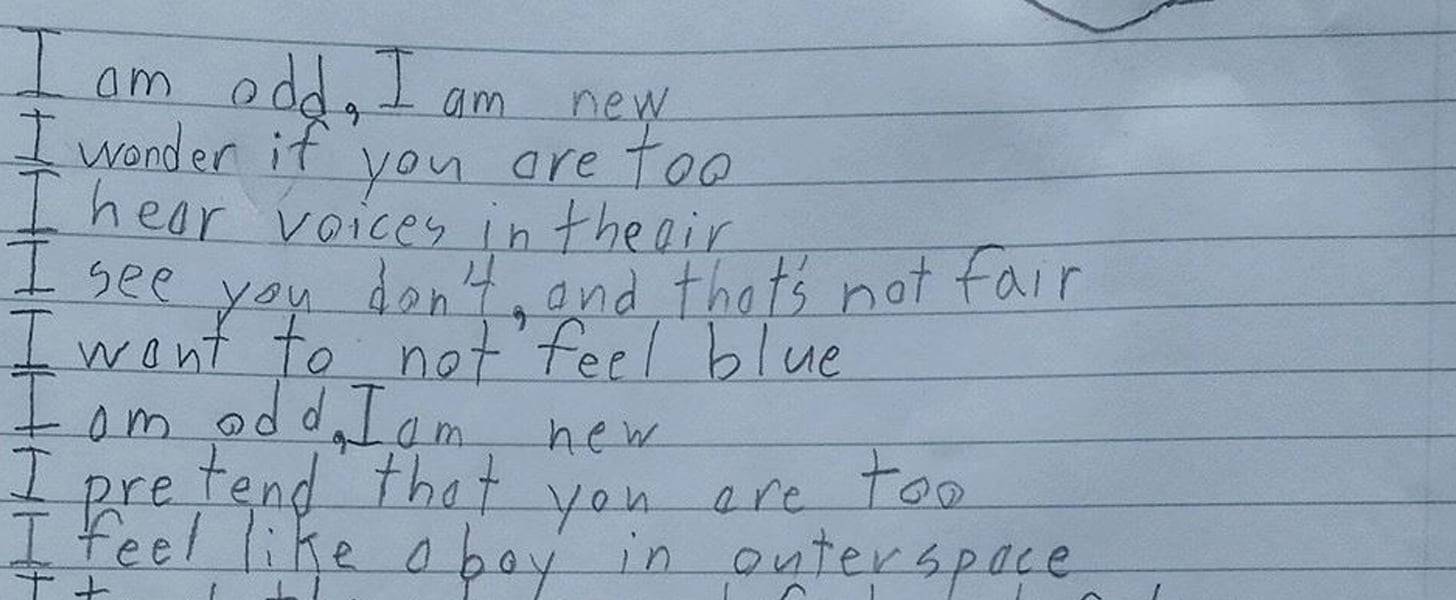 I am odd, I am new
I wonder if you are too
I hear voices in the air
I see you don't, and that's not fair
I want to not feel blue
I am odd, I am new
I pretend that you are too
I feel like a boy in outerspace